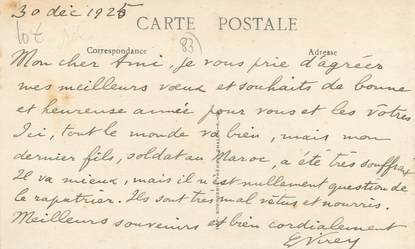 30 déc 1925
lot
CARTE POSTALE
83
Correspondance
Adresse
Mon cher Ami, je vous prie d'agréer
mes meilleurs vœux et souhaits de bonne
et heureuse année pour vous et les vôtres
Ici, tout le monde va bien, mais mon
dernier fils, soldat au Maroc, a été très souffrant
Il va mieux, mais il n'est nullement question de
le rapatrier. Ils sont très mal vêtus et nourris.
Meilleurs souvenirs et bien cordialement